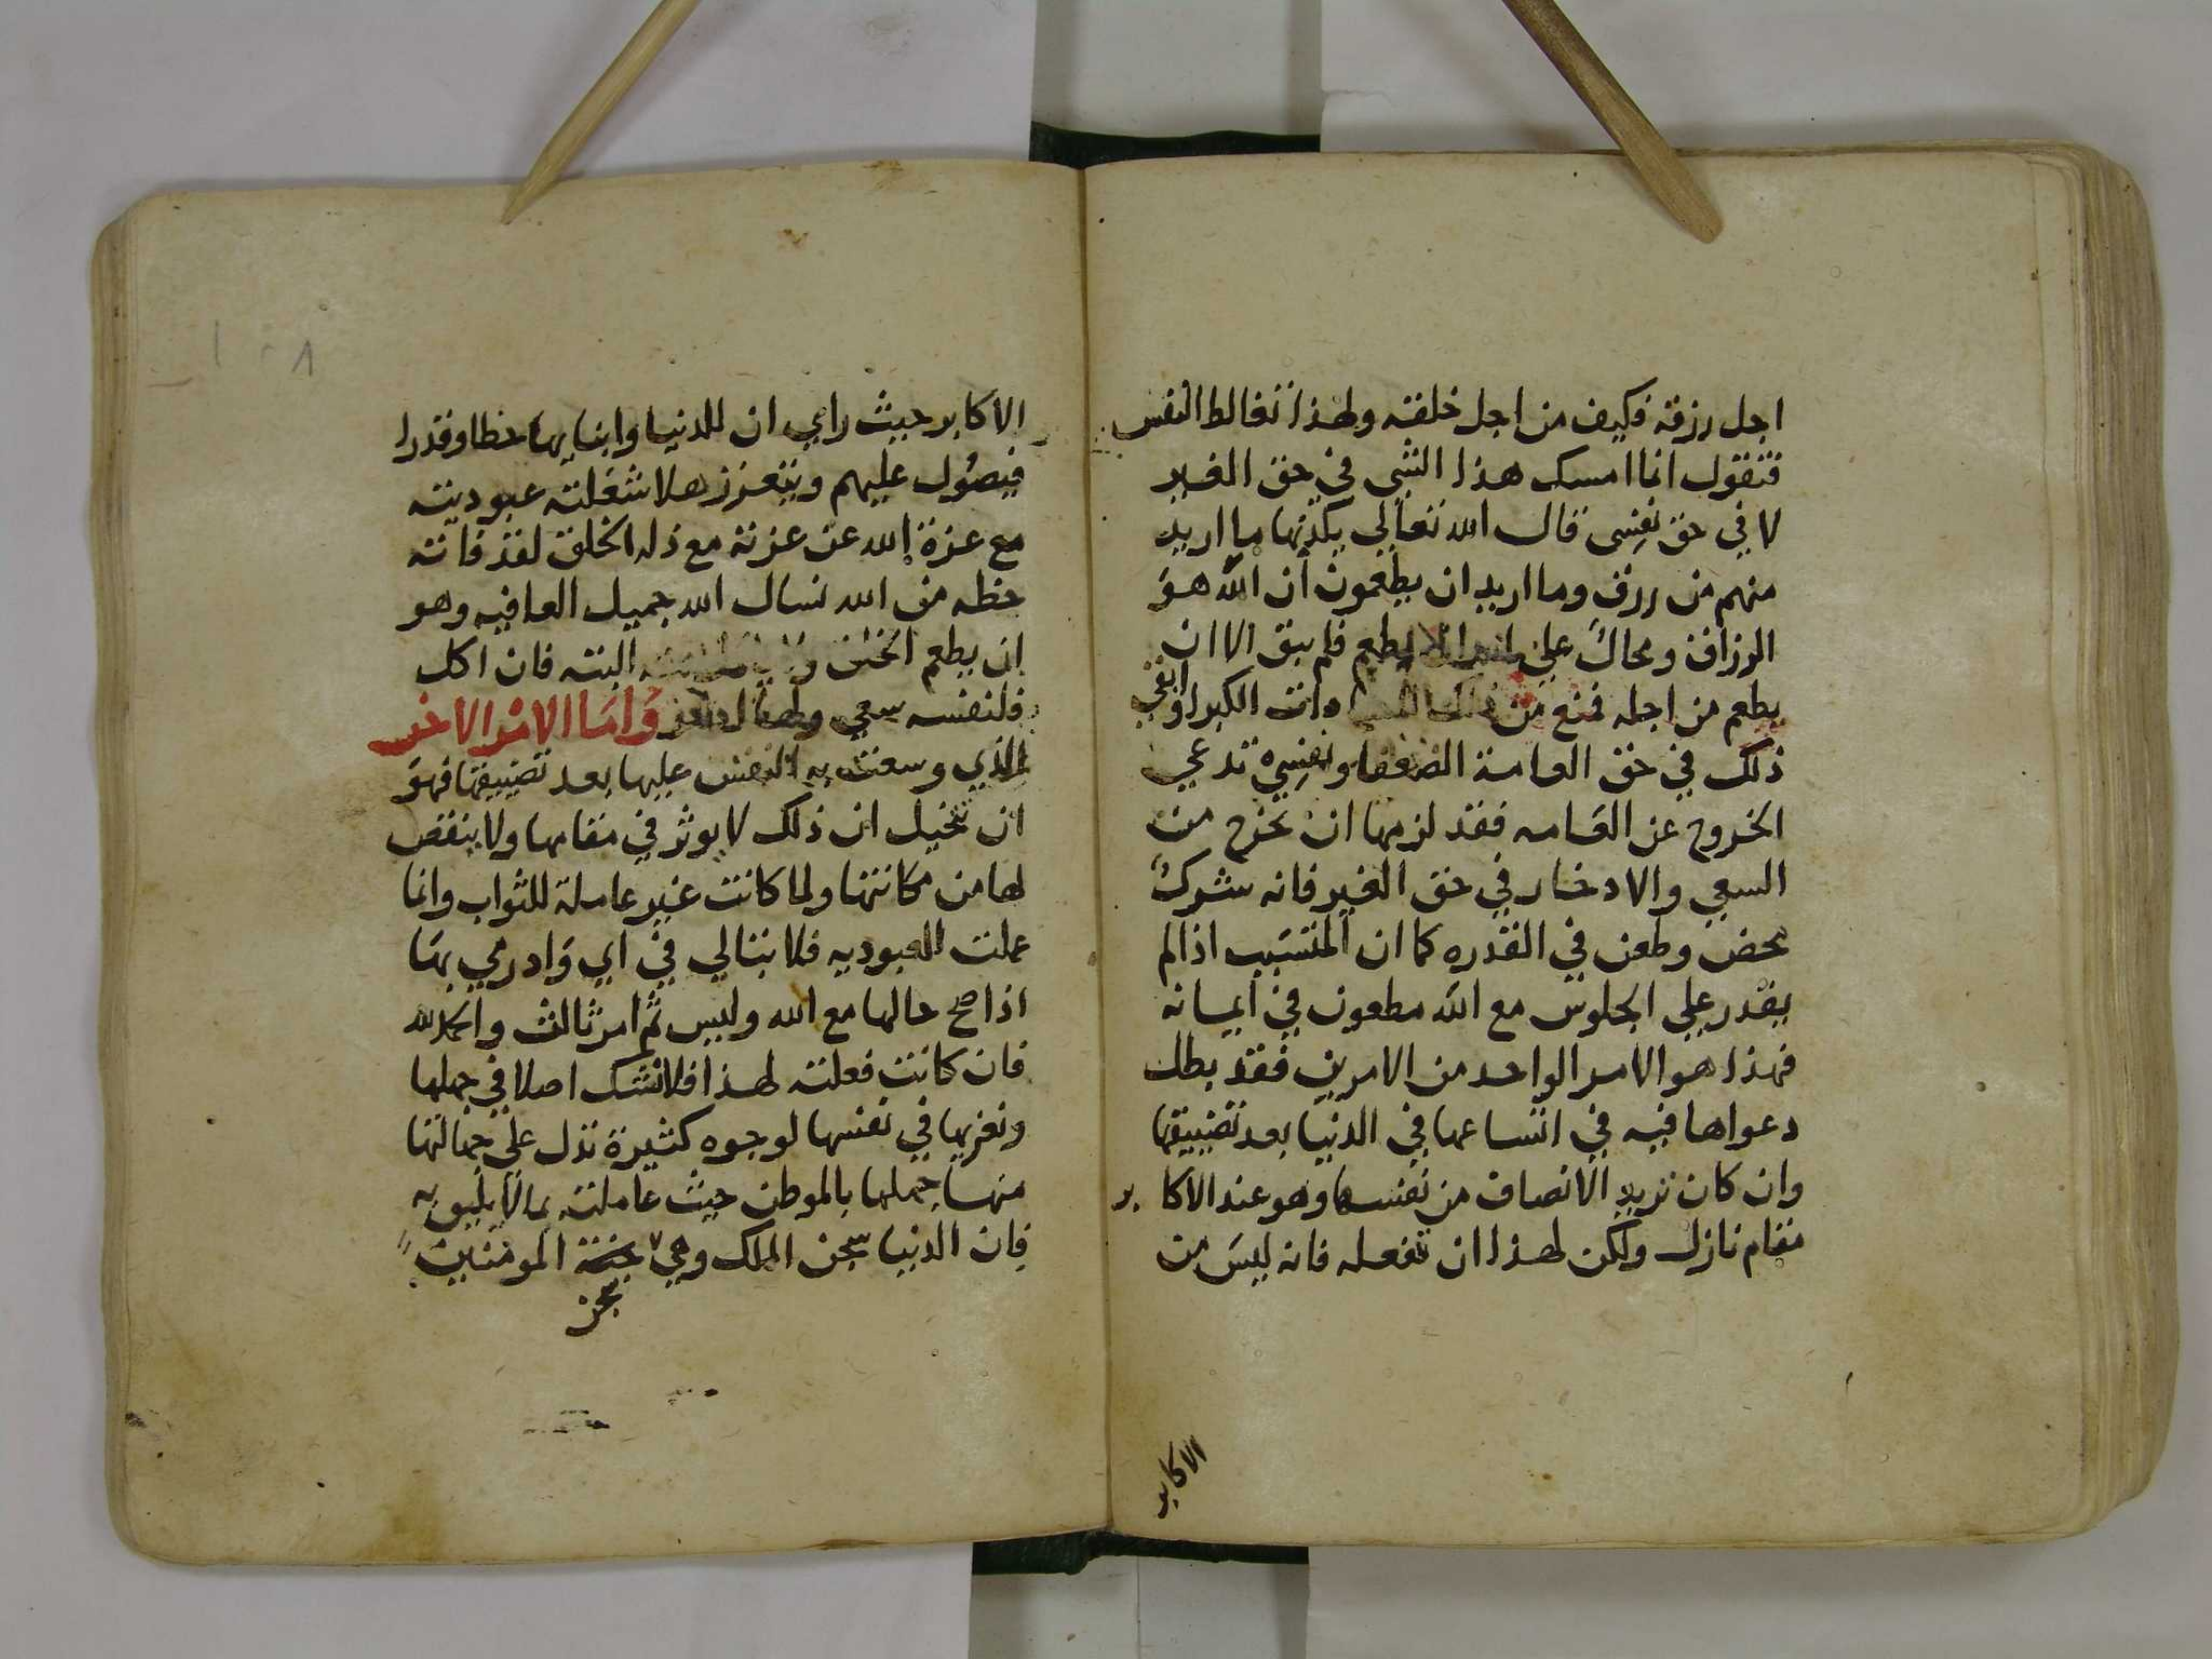 اجل رزقه فكيف من اجل خلقته ولهذا تغالط النفس
فتقول انما امسك هذا الشي في حق الغير
لا في حق نفسي قال الله تعالي يكذبها ما اريد
منهم من رزق وما اريد ان يطعمون ان الله هو
الرزاق ومحال علي يطعم فلم يبق الا ان
يطعم من اجله فمنع من ذلك وانت الكبر
ذلك في حق العامة الضعفا ونفسي تدعي
الخروج عن العامه فقد لزمها ان تخرج من
السعي والادخار في حق الغير فانه شرك
محض وطعن في القدره كما ان المتسبب اذا لم
يقدر علي الجلوس مع الله مطعون في ايمانه
فهذا هو الامر الواحد من الامرين فقد بطل
دعواها فيه في اتساعها في الدنيا بعد تضييقها
وان كان تريد الانصاف من نفسها وهو عند الاكابر
مقام نازل ولكن لهذا ان تفعله فانه ليس من
الاكابر
الاكابر حيث راي ان للدنيا وابنايها حظا وقدرا
فيصول عليهم ويتعزز هلا شغلته عبوديته
مع عزة الله عن عزته مع ذله الخلق لقد فاته
حظه من الله نسال الله جميل العافيه وهو
ان يطعم الخلق البته فان اكل
فلنفسه سعي واما الامر الاخر
الذي وسعت به النفس عليها بعد تضييقها فهو
ان تتخيل ان ذلك لا يوثر في مقامها ولا ينقص
لها من مكانتها ولما كانت غير عاملة للثواب وانما
عملت للعبوديه فلا تبالي في اي واد رمي بها
اذا صح حالها مع الله وليس ثم امر ثالث والحمد لله
فان كانت فعلته لهذا فلا نشك اصلا في جهلها
ونعزيها في نفسها لوجوه كثيرة تدل علي جهالتها
منها جهلها بالموطن حيث عاملته بما لا يليق به
فان الدنيا سجن الملك وهي جنة المومنين
سجن